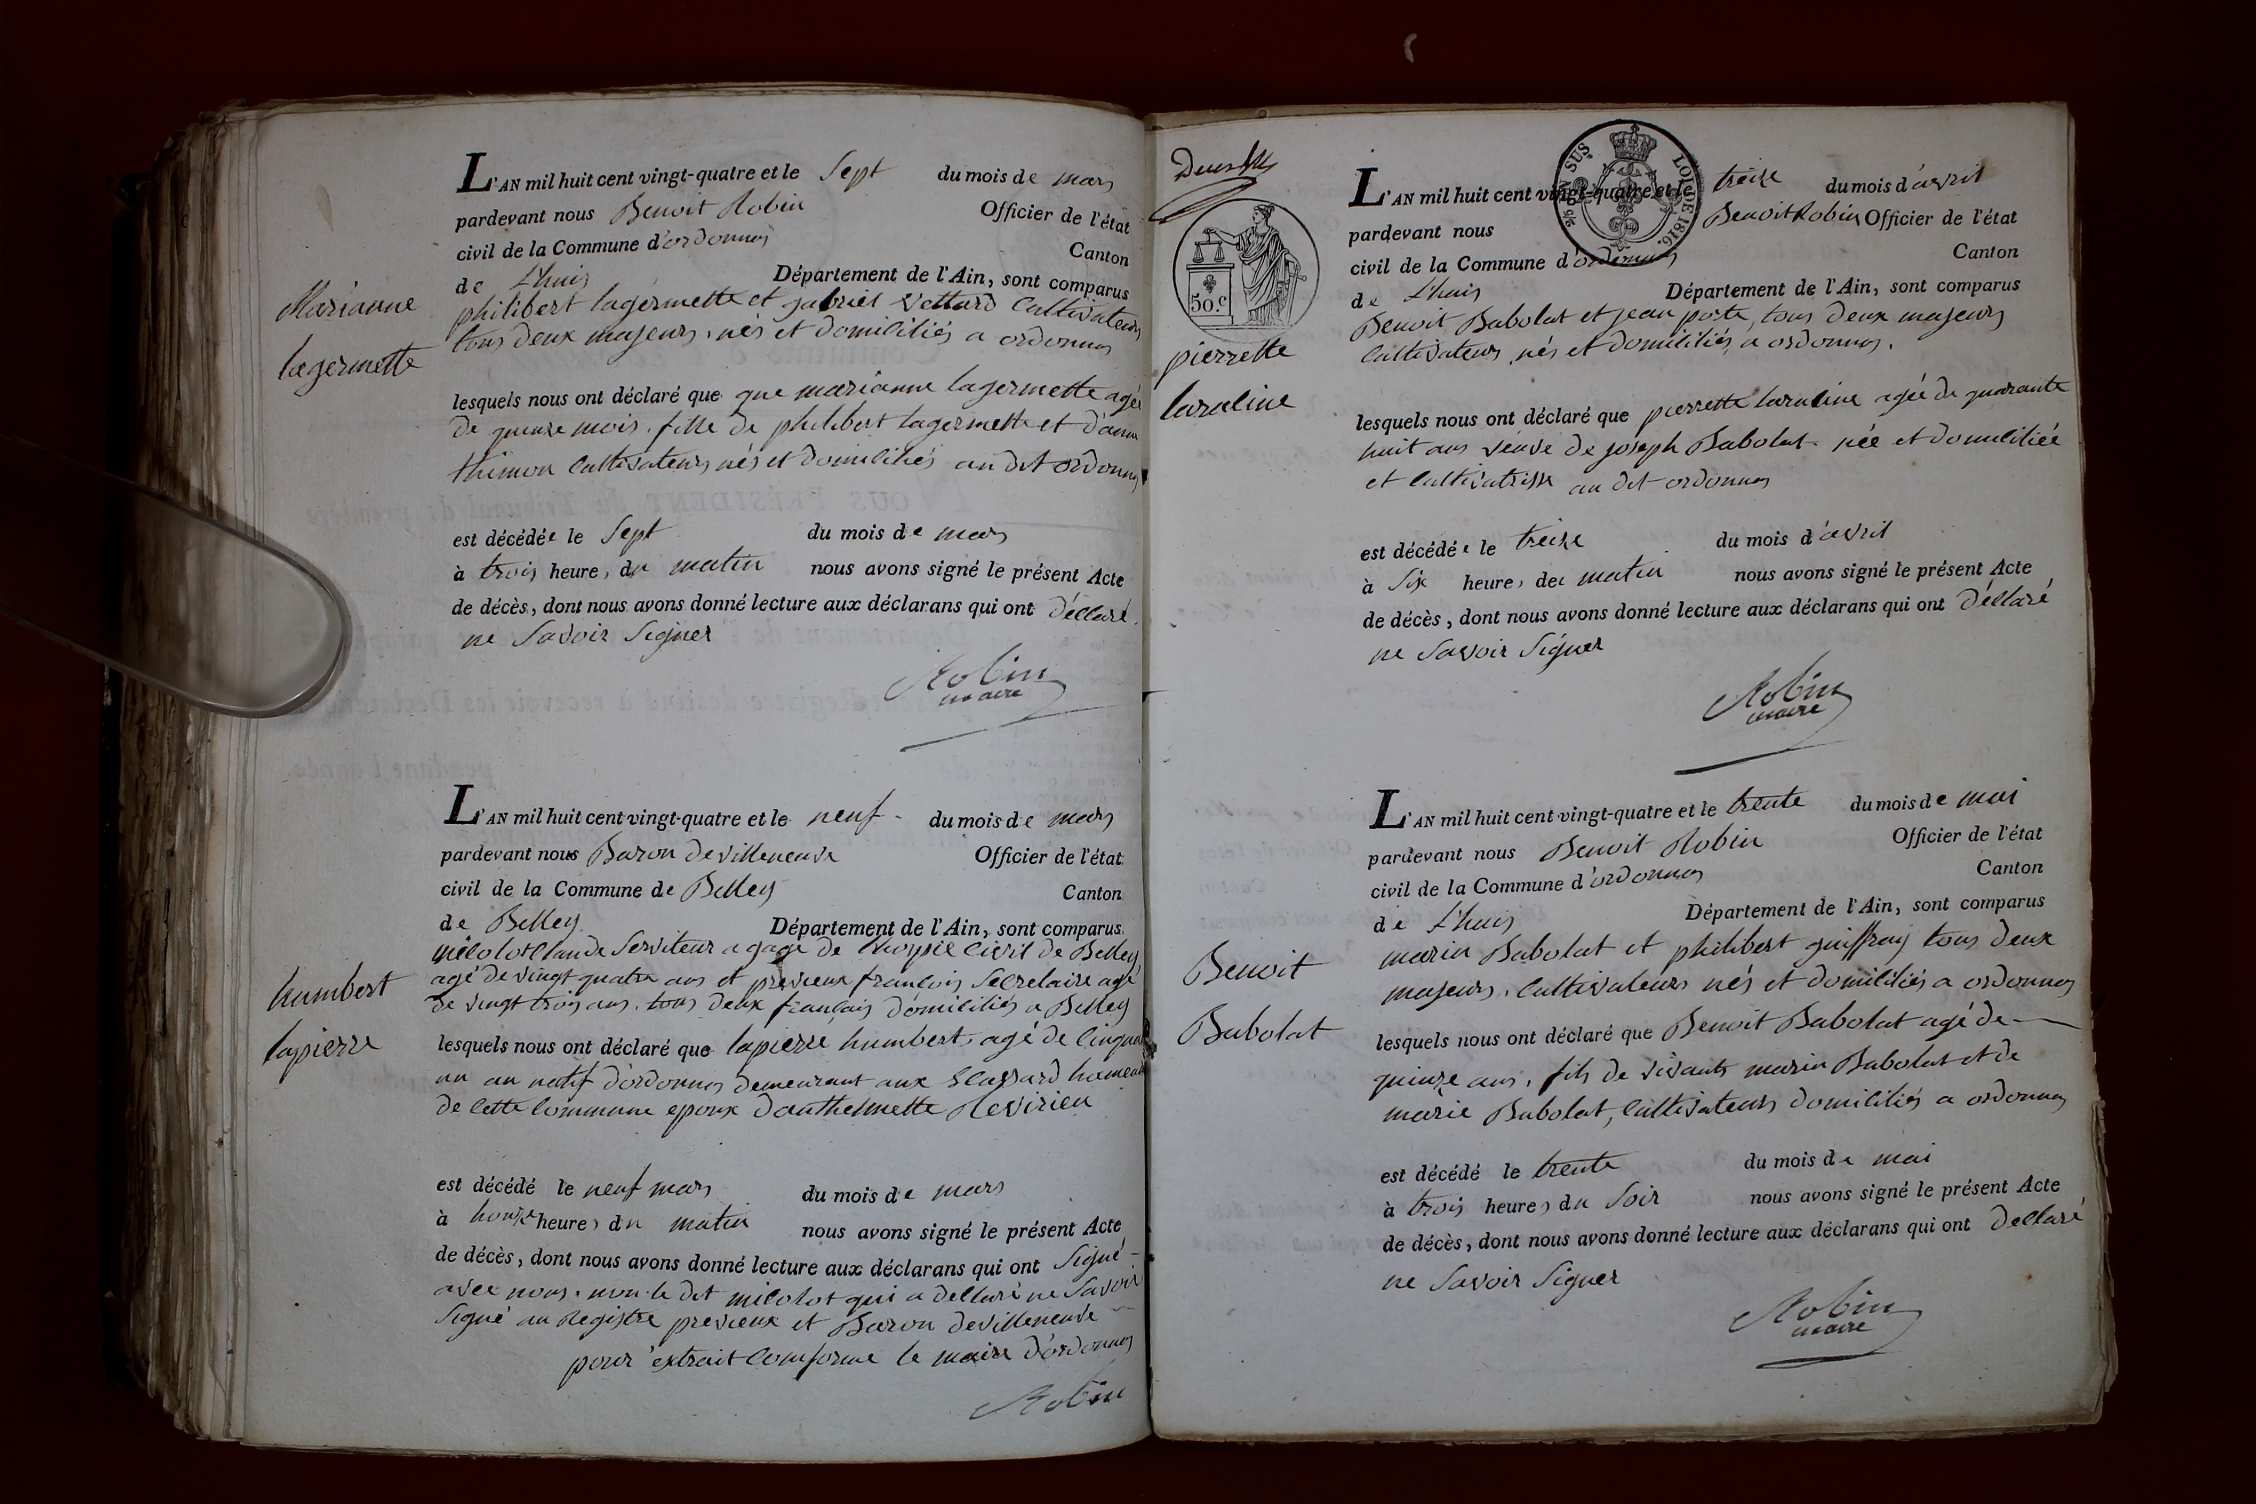 Marianne
lagermette
L'AN mil huit cent vingt-quatre et le Sept du mois de mars
pardevant nous Benoit Robin Officier de l'état
civil de la Commune d'ordonnas Canton
de L'huis Département de l'Ain, sont comparus
philibert lagermette et gabriel Vettard Cultivateurs
tous deux majeurs, nés et domiciliés a ordonnas
lesquels nous ont déclaré que que marianne lagermette agée
de quinze mois, fille de philibert lagermette et d'anne
thimon Cultivateurs nés et domiciliés au dit ordonnas
est décédée le Sept du mois de mars
à trois heures du matin nous avons signé le présent Acte
de décès, dont nous avons donné lecture aux déclarans qui ont déclaré
ne Savoir Signer
Robin
maire
humbert
lapierre
L'AN mil huit cent vingt-quatre et le neuf du mois de mars
pardevant nous Baron devilleneuve Officier de l'état
civil de la Commune de Belley Canton
de Belley Département de l'Ain, sont comparus
milolot Claude Serviteur a gage de l'hospice Civil de Belley
agé de vingt quatre ans et previeux francois Secretaire agé
de vingt trois ans, tous deux francais domiciliés a Belley
lesquels nous ont déclaré que lapierre humbert, agé de Cinquante
un an natif d'ordonnas demeurant aux hameau
de Cette Commune epoux d'anthelmette Revirieu
est décédé le neuf mars du mois de mars
à honze heures du matin nous avons signé le présent Acte
de décès, dont nous avons donné lecture aux déclarans qui ont Signé
avec nous, non le dit milolot qui a declaré ne Savoir
Signé au Registre previeux et Baron devilleneuve
pour extrait Comforme le maire d'ordonnas
Robin
50.c
LOI DE 1816.
pierrette
laraline
L'AN mil huit cent vingt-quatre et le treize du mois d'avril
pardevant nous Benoit Robin Officier de l'état
civil de la Commune d'ordonnas Canton
de L'huis Département de l'Ain, sont comparus
Benoit Babolat et jean poste, tous deux majeurs
Cultivateurs, nés et domiciliés a ordonnas.
lesquels nous ont déclaré que pierrette laraline agée de quarante
huit ans veuve de joseph Babolat, née et domiciliée
et Cultivatrisse au dit ordonnas
est décédée le treize du mois d'avril
à Six heures du matin nous avons signé le présent Acte
de décès, dont nous avons donné lecture aux déclarans qui ont déclaré
ne Savoir Signer
Robin
maire
Benoit
Babolat
L'AN mil huit cent vingt-quatre et le trente du mois de mai
pardevant nous Benoit Robin Officier de l'état
civil de la Commune d'ordonnas Canton
de L'huis Département de l'Ain, sont comparus
marin Babolat et philibert guiffray tous deux
majeurs, Cultivateurs nés et domiciliés a ordonnas
lesquels nous ont déclaré que Benoit Babolat agé de
quinze ans, fils de vivants marin Babolat et de
marie Babolat, Cultivateurs domiciliés a ordonnas
est décédé le trente du mois de mai
à trois heures du Soir nous avons signé le présent Acte
de décès, dont nous avons donné lecture aux déclarans qui ont declaré
ne Savoir Signer
Robin
maire